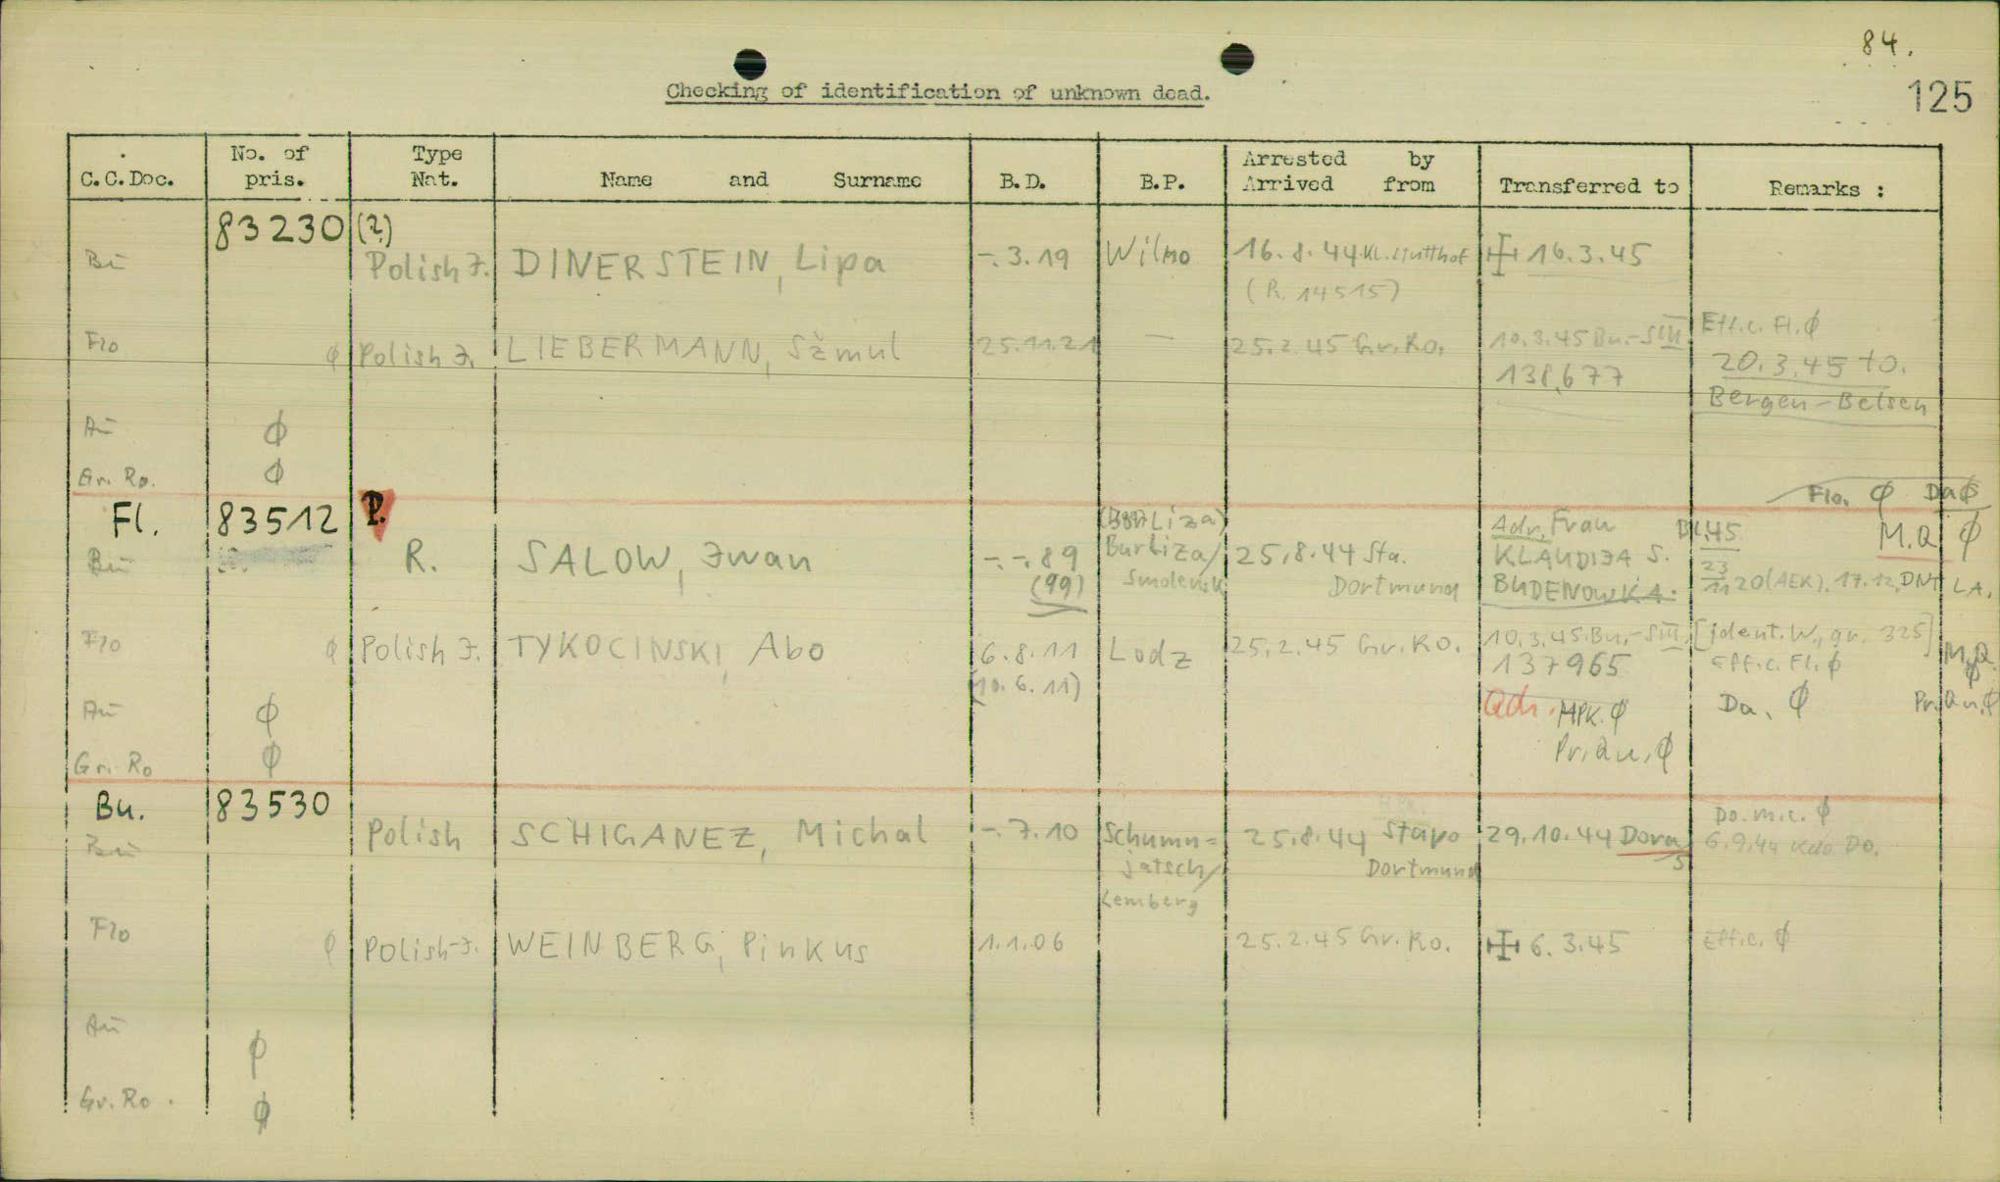 84.
125
Checking of identification of unknown dead.
C.C.Doc. No. of pris. Type Nat. Name and Surname B.D. B.P. Arrested by Arrived from Transferred to Remarks :
83230 (?)
Bu Polish J. DINERSTEIN, Lipa -.3.19 Wilno 16.8.44 KL. Stutthof ✠ 16.3.45
(R. 14515)
Flo φ Polish J. LIEBERMANN, Szmul 25.11.21 — 25.2.45 Gr.Ro. 10.3.45 Bu.-SIII Effic. Fl. φ
138677 20.3.45 to.
Bergen-Belsen
Au φ
Gr. Ro. φ
Flo. φ Da φ
Fl. 83512 P. Adr. Frau 45 M.Q φ
Bu R. SALOW, Iwan -.-.89 Burliza/ 25.8.44 Sta. KLAUDIJA S.
(99) Smolensk Dortmund BUDENOWKA. 20 (AEK). 17.12. DNT LA.
Flo φ Polish J. TYKOCINSKI, Abo 6.8.11 Lodz 25.2.45 Gr.Ro. 10.3.45 Bu.-SIII [ident. W., gr. 325] M.Q. φ
(10.6.11) 137965 Effic. Fl. φ
Au φ Adr. MPK. φ Da. φ Pr.Qu. φ
Gr. Ro φ Pr.Qu. φ
Bu. 83530 Do. m.c. φ
Bu Polish SCHIGANEZ, Michal -.7.10 Schumn= 25.8.44 Stapo 29.10.44 Dora 6.9.44 Kdo Do.
jatsch/ Dortmund S
Lemberg
Flo φ Polish-J. WEINBERG, Pinkus 1.1.06 25.2.45 Gr.Ro. ✠ 6.3.45 Effic. φ
Au φ
Gr. Ro. φ